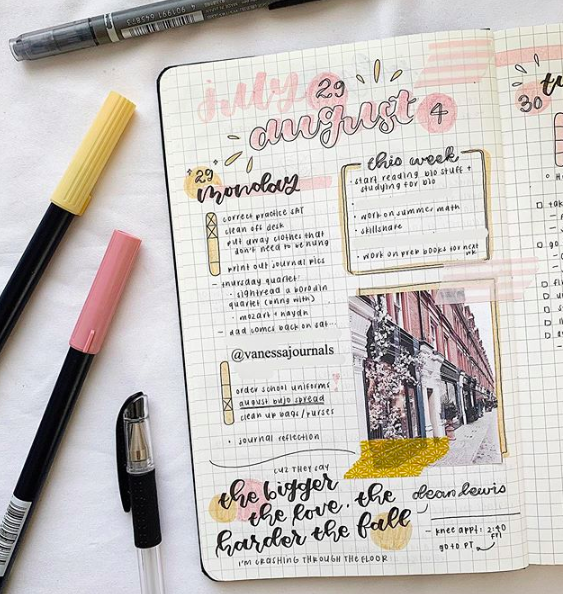 july 29
august 4
29
monday
correct practice SAT
clean off desk
put away clothes that
don't need to be hung
print out journal pics
- thursday quartet:
• sightread a borodin
quartet (unng with)
• mozart + haydn
- dad comes back on sat.
@vanessajournals
order school uniforms
august bujo spread
clean up bags/purses
• journal reflection
this week
• start reading bio stuff +
studying for bio
• work on summer math
• skillshare
• work on prep books for next
wk
cuz they say
the bigger
the love, the
harder the fall
i'm crashing through the floor
dean lewis
- knee appt: 2:40
Fri
go to PT
30
tu
tak
go